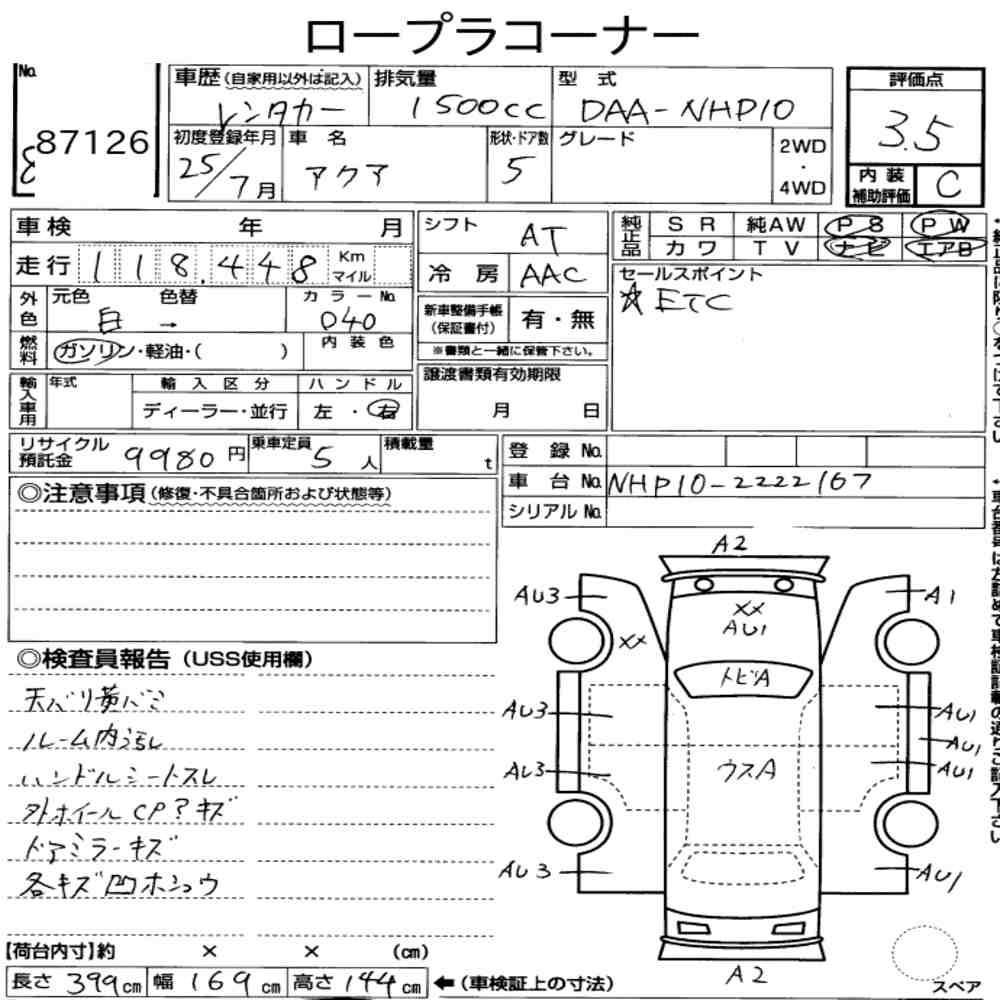 ロープラコーナー
No.
87126
車歴(自家用以外は記入)
レンタカー
排気量
1500cc
型式
DAA-NHP10
評価点
3.5
初度登録年月
25/7月
車名
アクア
形状・ドア数
5
グレード
2WD
・
4WD
内装
補助評価
C
車検 年 月
走行 118.448 Km
マイル
外色
元色 色替
白 →
カラーNo.
040
燃料
ガソリン・軽油・( )
内装色
輸入車用
年式
輸入区分
ディーラー・並行
ハンドル
左・右
シフト
AT
冷房
AAC
新車整備手帳
(保証書付)
有・無
※書類と一緒に保管下さい。
譲渡書類有効期限
月 日
純正品
SR 純AW PS PW
カワ TV ナビ エアB
セールスポイント
☆ETC
リサイクル
預託金
9980円
乗車定員
5人
積載量
t
登録No.
車台No. NHP10-2222167
シリアルNo.
◎注意事項(修復・不具合箇所および状態等)
◎検査員報告(USS使用欄)
天バリ黄バミ
ルーム内汚レ
ハンドルシートスレ
外ホイールCPアキズ
ドアミラーキズ
各キズ凹ホシュウ
A2
AU3
A1
XX
AU1
XX
トビA
AU3
AU1
AU1
AU3
ウスA
AU1
AU3
AU1
A2
スペア
【荷台内寸】約 × × (cm)
長さ 399cm 幅 169cm 高さ 144cm ←(車検証上の寸法)